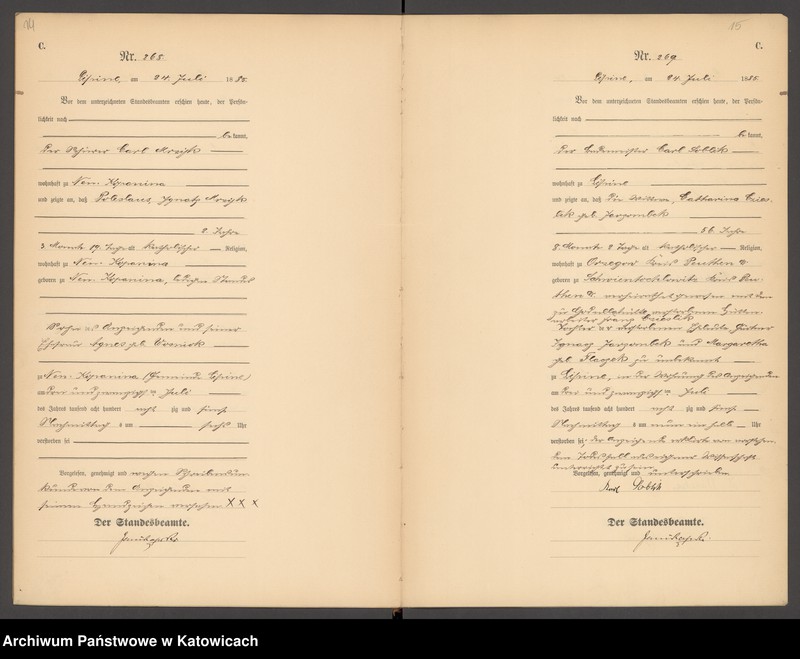 14
C.
Nr. 268
Lipine, am 24. Juli 1885
Vor dem unterzeichneten Standesbeamten erschien heute, der Persön-
lichkeit nach
bekannt,
der Carl Mrozik
wohnhaft zu Neu-Kopanina
und zeigte an, daß Polikarp Ignatz Mrozik
2 Jahre
3 Monate 19 Tage alt katholischer Religion,
wohnhaft zu Neu-Kopanina
geboren zu Neu-Kopanina, ledigen Standes
Sohn des Anzeigenden und seiner
Ehefrau Agnes geb.
zu Neu-Kopanina (Gemeinde Lipine)
am drei und zwanzigsten Juli
des Jahres tausend acht hundert acht zig und fünf
Nachmittags um sechs Uhr
verstorben sei
Vorgelesen, genehmigt und wegen Schreibensun-
kunde von dem Anzeigenden mit
seinem Handzeichen versehen X X X
Der Standesbeamte.
15
C.
Nr. 269
Lipine, am 24. Juli 1885
Vor dem unterzeichneten Standesbeamten erschien heute, der Persön-
lichkeit nach
bekannt,
der Carl Soblik
wohnhaft zu Lipine
und zeigte an, daß die Wittwe Catharina
geb.
56 Jahre
8 Monate 2 Tage alt katholischer Religion,
wohnhaft zu Orzegow Kreis Beuthen
geboren zu Schwientochlowitz Kreis Beu-
then verheirathet gewesen mit dem
zu verstorbenen
Franz
Tochter der verstorbenen Eheleute
Ignaz und Margaretha
geb. zu unbekannt
zu Lipine, in der Wohnung des Anzeigenden
am drei und zwanzigsten Juli
des Jahres tausend acht hundert acht zig und fünf
Nachmittags um neun ein halb Uhr
verstorben sei; der Anzeigende erklärte von
dem Todesfall aus eigener Wissenschaft
unterrichtet zu sein
Vorgelesen, genehmigt und unterschrieben
Karl Soblik
Der Standesbeamte.
Archiwum Państwowe w Katowicach